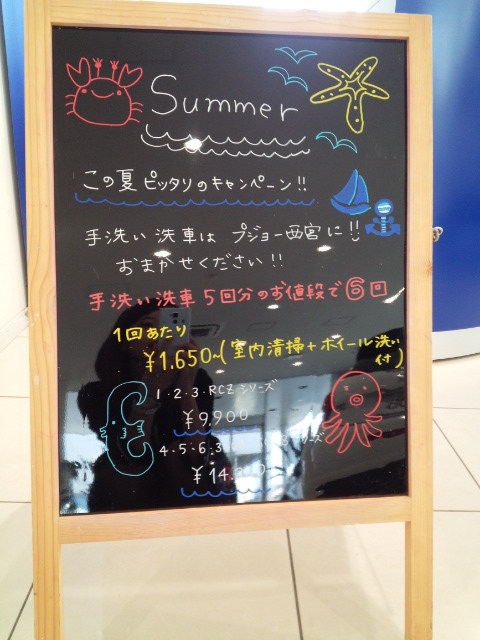 Summer
この夏ピッタリのキャンペーン!!
手洗い洗車は プジョー西宮に!!
おまかせください!!
手洗い洗車5回分のお値段で⑥回
1回あたり
¥1.650〜(室内清掃+ホイール洗い付)
1・2・3・RCZシリーズ
¥9,900
4・5・6・3 シリーズ
¥14.